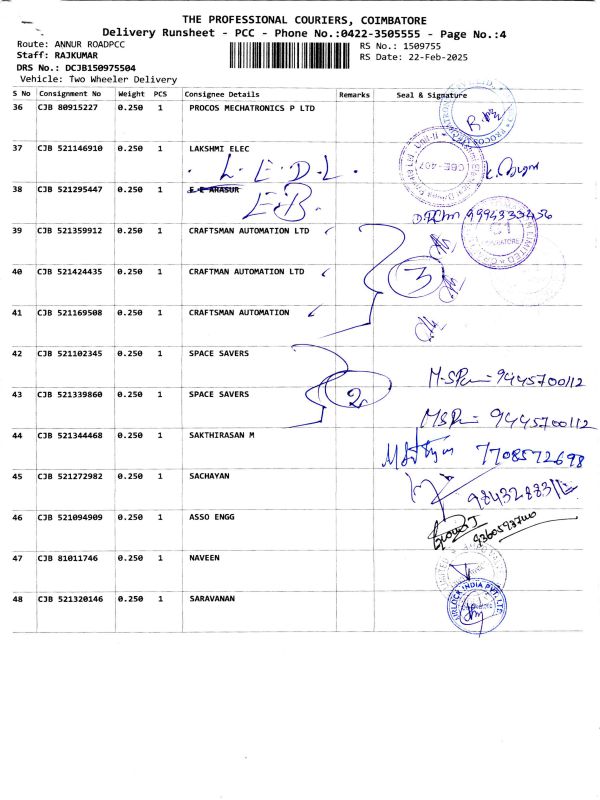 THE PROFESSIONAL COURIERS, COIMBATORE
Delivery Runsheet - PCC - Phone No.:0422-3505555 - Page No.:4
Route: ANNUR ROADPCC
RS No.: 1509755
Staff: RAJKUMAR
RS Date: 22-Feb-2025
DRS No.: DCJB150975504
Vehicle: Two Wheeler Delivery
S No Consignment No Weight PCS Consignee Details Remarks Seal & Signature
36 CJB 80915227 0.250 1 PROCOS MECHATRONICS P LTD
37 CJB 521146910 0.250 1 LAKSHMI ELEC
L.E.D.L.
CBE-407
38 CJB 521295447 0.250 1 E E ARASUR
E.B.
39 CJB 521359912 0.250 1 CRAFTSMAN AUTOMATION LTD
40 CJB 521424435 0.250 1 CRAFTMAN AUTOMATION LTD
3
41 CJB 521169508 0.250 1 CRAFTSMAN AUTOMATION
42 CJB 521102345 0.250 1 SPACE SAVERS
9445700112
43 CJB 521339860 0.250 1 SPACE SAVERS
2
9445700112
44 CJB 521344468 0.250 1 SAKTHIRASAN M
7708572698
45 CJB 521272982 0.250 1 SACHAYAN
46 CJB 521094909 0.250 1 ASSO ENGG
47 CJB 81011746 0.250 1 NAVEEN
48 CJB 521320146 0.250 1 SARAVANAN
INDIA PVT. LTD.